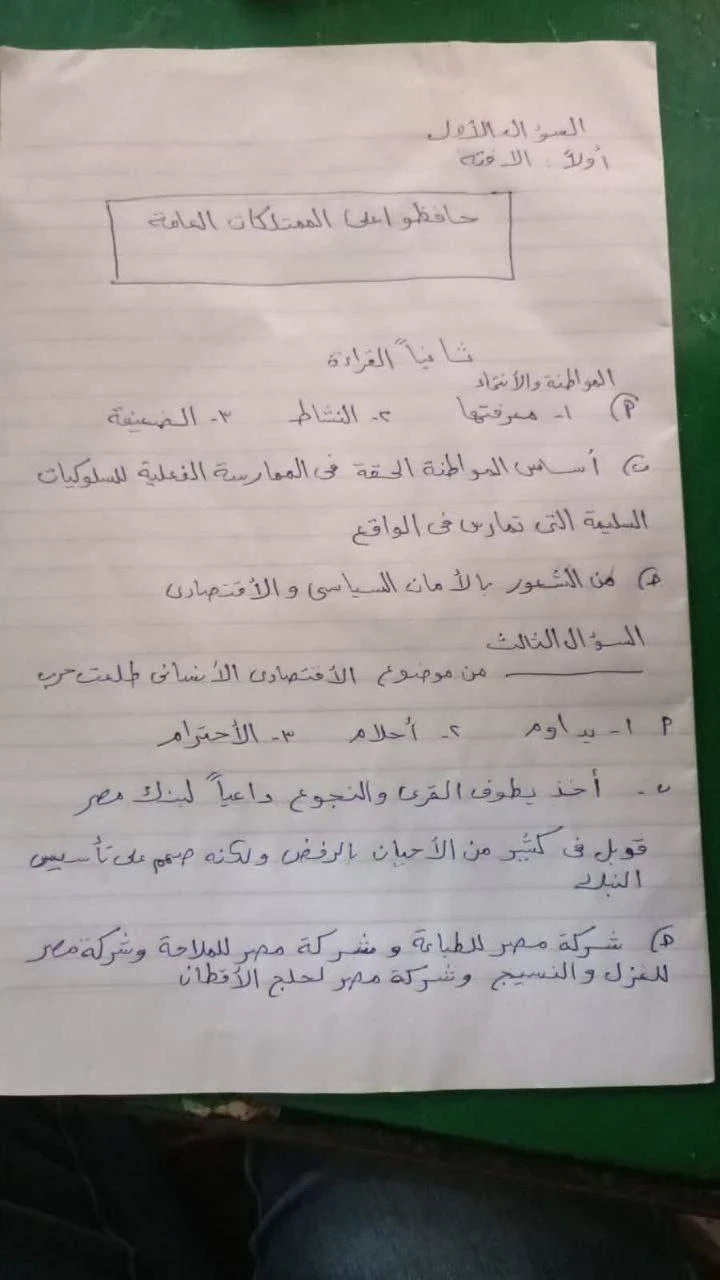 السؤال الأول
أولاً : الافته
حافظوا على الممتلكات العامة
ثانياً القراءة
المواطنة والأنتماء
P) ١- معرفتها ٢- النشاط ٣- الضعيفة
ب) أساس المواطنة الحقة فى الممارسة الفعلية للسلوكيات
السليمة التى تمارس فى الواقع
ج) من الشعور بالأمان السياسى والأقتصادى
السؤال الثالث
من موضوع الأقتصادى الأنسانى طلعت حرب
P ١- يداوم ٢- أحلام ٣- الأحترام
ب- أخذ يطوف القرى والنجوع داعياً لبنك مصر
قوبل فى كثير من الأحيان بالرفض ولكنه صمم على تأسيس
البنك
ج) شركة مصر للطباعة وشركة مصر للملاحة وشركة مصر
للغزل والنسيج وشركة مصر لحلج الأقطان